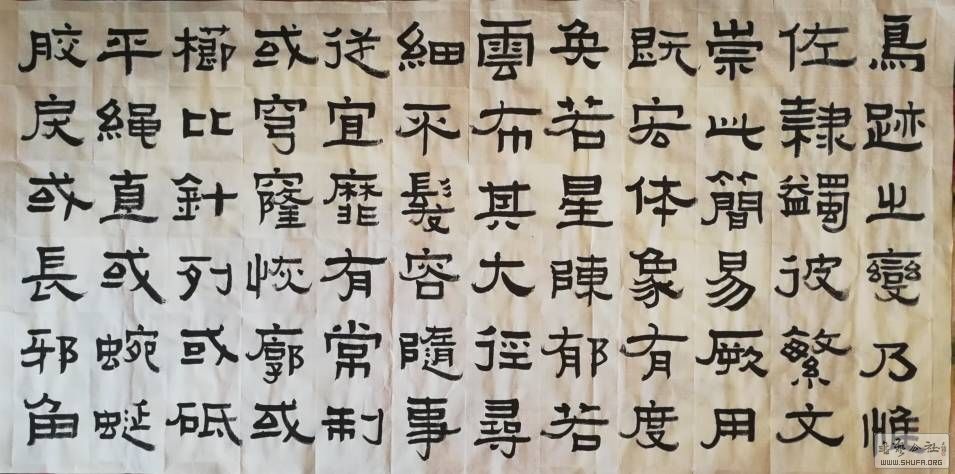 鳥跡之變乃惟
佐隸蠲彼繁文
崇此簡易厥用
既宏体象有度
奐若星陳郁若
雲布其大徑尋
細不髮容隨事
從宜靡有常制
或穹窿恢廓或
櫛比針列或砥
平繩直或蜿蜒
胶戾或長邪角
WWW.SHUFA.ORG